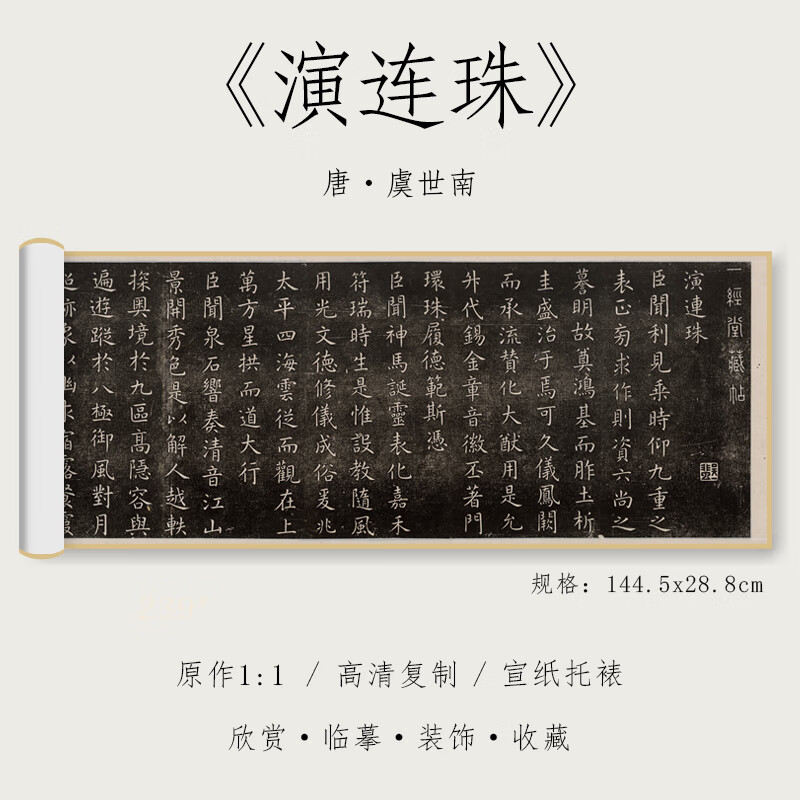 《演连珠》
唐·虞世南
一經堂藏帖
演連珠
臣聞利見乘時仰九重之
表正旁求作則資六尚之
暮明故奠鴻基而胙土析
圭盛治于焉可久儀鳳闕
而承流贊化大猷用是允
升代錫金章音徽丕著門
環珠履德範斯憑
臣聞神馬誕靈表化嘉禾
符瑞時生是惟設教隨風
用光文德修儀成俗爰兆
太平四海雲從而觀在上
萬方星拱而道大行
臣聞泉石響奏清音江山
景開秀色是以解人越軼
探奧境於九區高隱容與
遍遊蹤於八極御風對月
规格：144.5x28.8cm
原作1:1 / 高清复制 / 宣纸托裱
欣赏·临摹·装饰·收藏